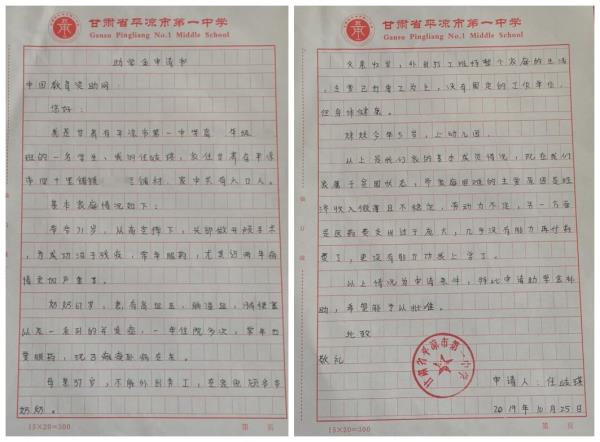 甘肃省平凉市第一中学
Gansu Pingliang No.1 Middle School
助学金申请书
中国教育资助网:
您好:
我是甘肃省平凉市第一中学高 年级
班的一名学生,我叫任 瑛,家住甘肃省平凉
市四十里铺镇 三铺村,家中共有八口人。
基本家庭情况如下:
爷爷71岁,从南李摔下,头部做开颅手术,
为成功治于残疾,常年服药,尤其近两年病
情更加严重了。
奶奶67岁,患有高血压,脑溢血,
以及一系列的并发症,一年住院多次,常年
量服药,现已瘫痪卧病在床。
母亲37岁,不能外出务工,在家照顾爷爷
奶奶。
15×20=300
第 页
甘肃省平凉市第一中学
Gansu Pingliang No.1 Middle School
父亲 岁,外出打工维持整个家庭的生活
,主要已打零工为主,没有固定的工作单位,
但身体健康。
妹妹今年5岁,上幼儿园。
以上是我们家的基本成员情况,现在我们
家属于贫困状态,令家庭困难的主要原因是经
济收入微薄且不稳定,劳动力不足,另一方面
是医药费支出过于庞大,几乎没有能力再付药
费了,更没有能力供我上学了。
以上情况为申请条件,特此申请助学金补
助,希望能予以批准。
此致
敬礼
甘肃省平凉市第一中学
申请人:任 瑛
2019年10月25日
15×20=300
第 页